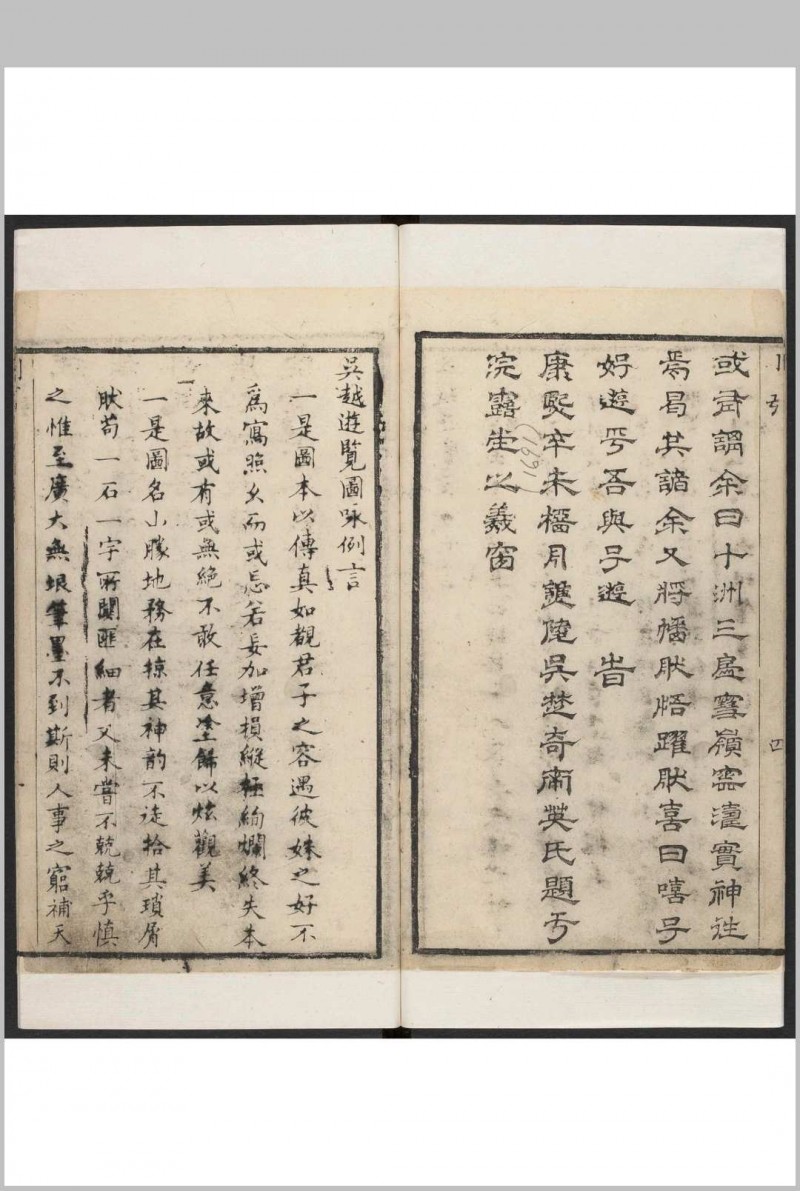 或有謂余曰十洲三島雪嶺雲實神往
焉曷其詣余又將幡肰悟躍肰喜曰嘻子
好遊乎吾與子遊 旹
康熙辛未榴月吳楚奇英氏題于
浣露堂之羲窗
(1691)
四
吳越遊覽圖咏例言
一是圖本以傳真如觀君子之容遇佼姝之好不
爲寫照久而或忘若妄加增損縱極絢爛終失本
來故或有或無絶不敢任意塗餙以炫觀美
一是圖名山勝地務在掠其神韵不徒拾其瑣屑
肰苟一石一字所關匪細者又未嘗不兢兢乎慎
之惟至廣大無垠筆墨不到斯則人事之窮補天